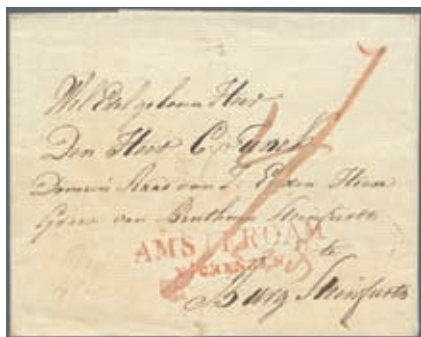 Wel Edel geboren Heer
Den Heer C. Funck
Domein Raad van Z. Exzen Heere
Grave van Bentheim Steinfurt
AMSTERDAM
te
Burg Steinfurt